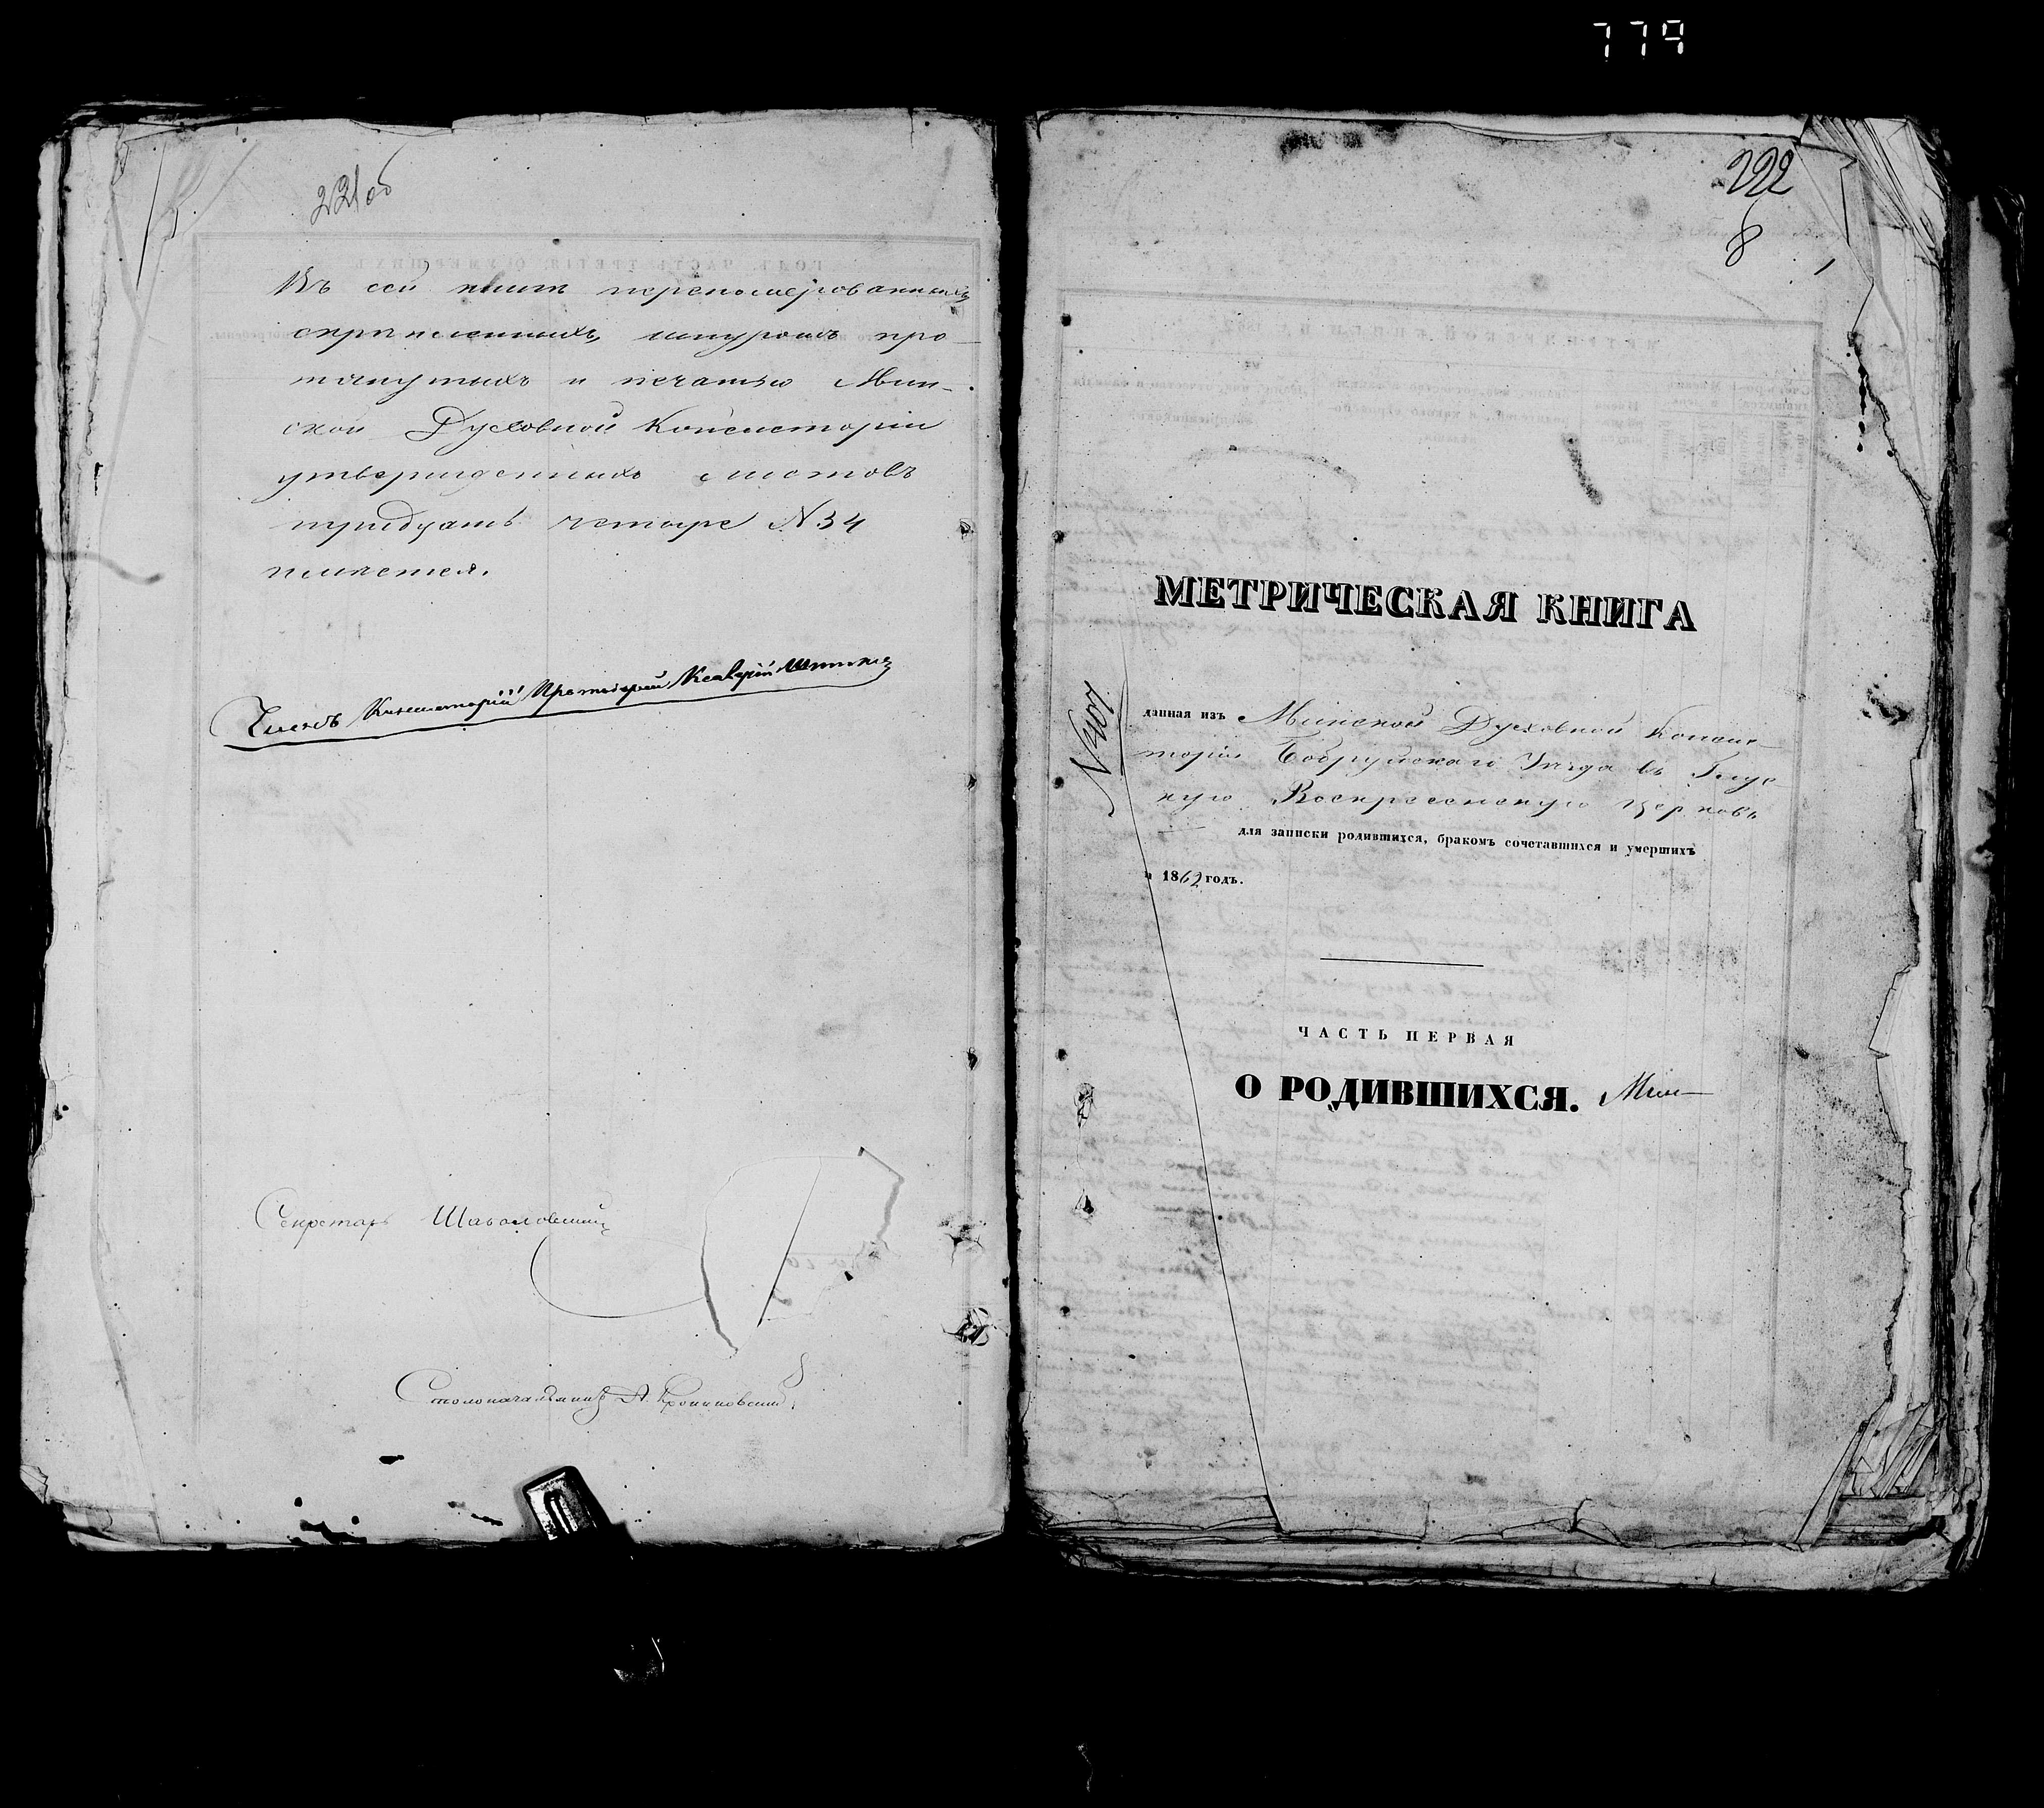 779
221об
Въ сей книгѣ перенумерованныхъ
скрѣпленныхъ, шнуромъ про-
тянутыхъ и печатью Мин-
ской Духовной Консисторіи
утвержденныхъ листовъ
тридцать четыре N 34
имѣется.
Членъ Консисторіи Протоіерей
Секретарь
Столоначальникъ А.
222
8
МЕТРИЧЕСКАЯ КНИГА
N 407
данная изъ Минской Духовной Консис-
торіи Бобруйскаго Уѣзда въ Глус-
кую Воскресенскую церковь
для записки родившихся, бракомъ сочетавшихся и умершихъ
1862 годъ.
ЧАСТЬ ПЕРВАЯ
О РОДИВШИХСЯ. Мин-